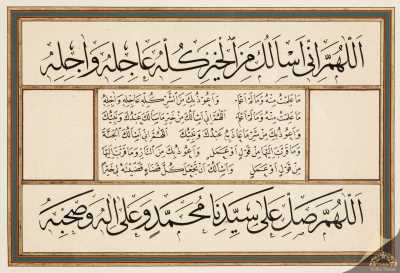 اَللّٰهُمَّ اِنّٖى اَسْأَلُكَ مِنَ الْخَيْرِ كُلِّهِ عَاجِلِهِ وَاٰجِلِهِ
مَا عَلِمْتُ مِنْهُ وَمَا لَمْ اَعْلَمْ وَاَعُوذُ بِكَ مِنَ الشَّرِّ كُلِّهِ عَاجِلِهِ وَاٰجِلِهِ
مَا عَلِمْتُ مِنْهُ وَمَا لَمْ اَعْلَمْ اَللّٰهُمَّ اِنّٖى اَسْأَلُكَ مِنْ خَيْرِ مَا سَأَلَكَ عَبْدُكَ وَنَبِيُّكَ
وَاَعُوذُ بِكَ مِنْ شَرِّ مَا عَاذَ مِنْهُ عَبْدُكَ وَنَبِيُّكَ اَللّٰهُمَّ اِنّٖى اَسْأَلُكَ الْجَنَّةَ
وَمَا قَرَّبَ اِلَيْهَا مِنْ قَوْلٍ اَوْ عَمَلٍ وَاَعُوذُ بِكَ مِنَ النَّارِ وَمَا قَرَّبَ اِلَيْهَا
مِنْ قَوْلٍ اَوْ عَمَلٍ وَاَسْأَلُكَ اَنْ تَجْعَلَ كُلَّ قَضَاءٍ قَضَيْتَهُ لِى خَيْرًا
اَللّٰهُمَّ صَلِّ عَلٰى سَيِّدِنَا مُحَمَّدٍ وَعَلٰى اٰلِهِ وَصَحْبِهِ